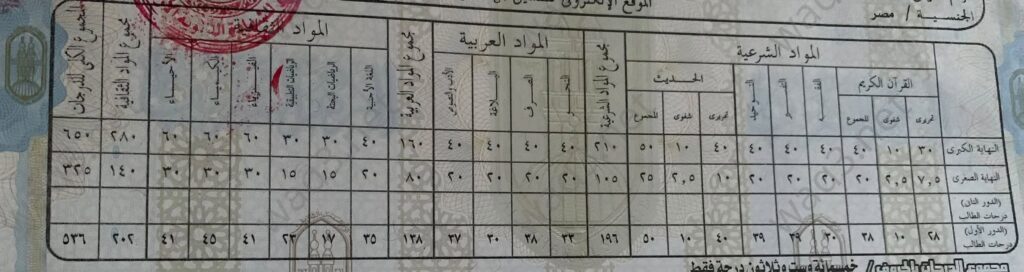 الموقع الإلكتروني
الجنسية / مصر
المواد الشرعية
المواد العربية
المواد الثقافية
القرآن الكريم
الحديث
تحريرى شفوى المجموع الفقه التفسير التوحيد تحريرى شفوى المجموع مجموع المواد الشرعية النحو الصرف البلاغة الأدب والنصوص مجموع المواد العربية اللغة الأجنبية الرياضيات البحتة الرياضيات التطبيقية الفيزياء الكيمياء الأحياء مجموع المواد الثقافية المجموع الكلى للدرجات
النهاية الكبرى ٣٠ ١٠ ٤٠ ٤٠ ٤٠ ٤٠ ٤٠ ١٠ ٥٠ ٢١٠ ٤٠ ٤٠ ٤٠ ٤٠ ١٦٠ ٤٠ ٣٠ ٣٠ ٦٠ ٦٠ ٦٠ ٢٨٠ ٦٥٠
النهاية الصغرى ٧,٥ ٢,٥ ٢٠ ٢٠ ٢٠ ٢٠ ١٠ ٢,٥ ٢٥ ١٠٥ ٢٠ ٢٠ ٢٠ ٢٠ ٨٠ ٢٠ ١٥ ١٥ ٣٠ ٣٠ ٣٠ ١٤٠ ٣٢٥
(الدور الثان)
درجات الطالب
(الدور الأول) ٢٨ ١٠ ٣٨ ٣٠ ٣٩ ٣٩ ٤٠ ١٠ ٥٠ ١٩٦ ٣٣ ٣٨ ٣٠ ٣٧ ١٣٨ ٣٥ ١٧ ٢٣ ٤١ ٤٥ ٤١ ٢٠٢ ٥٣٦
درجات الطالب
خمسمائة وست وثلاثون درجة فقط